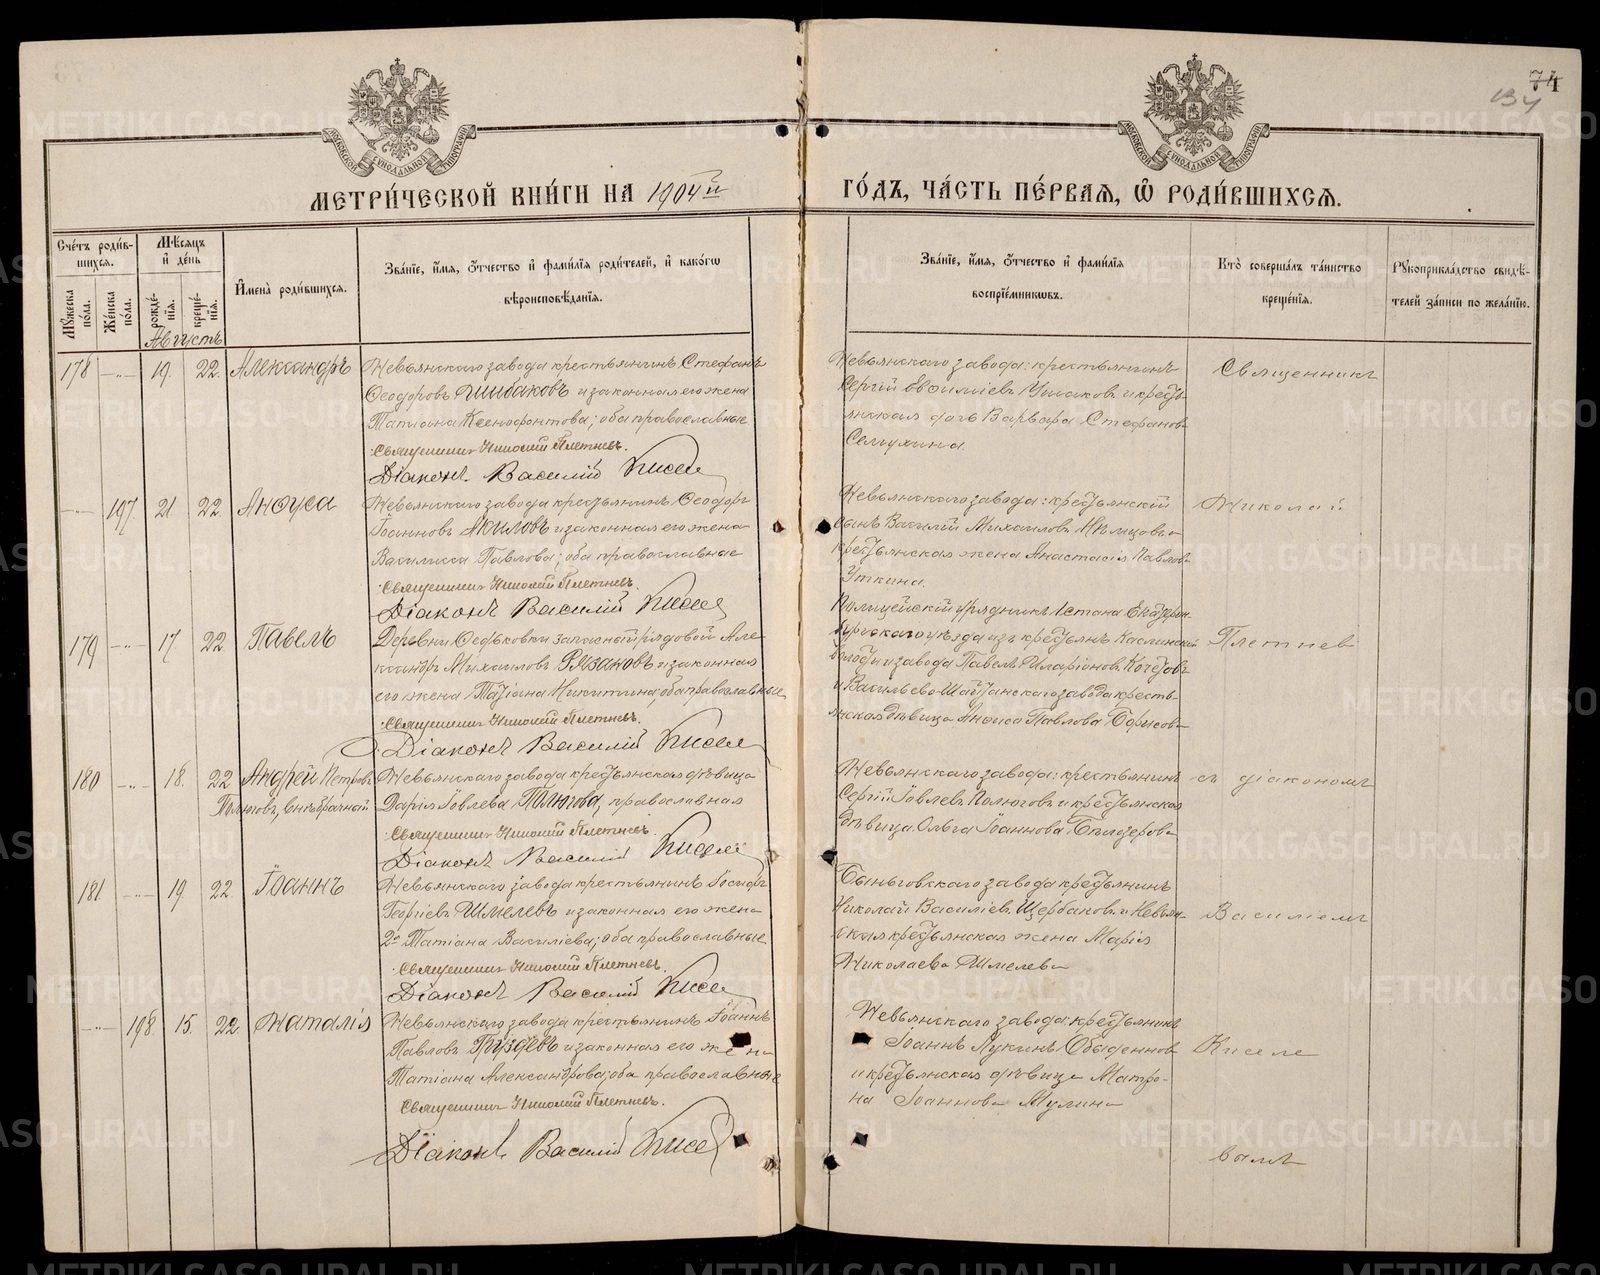 74
134
МОСКОВСКОЙ СѴНОДАЛЬНОЙ ТИПОГРАФІИ
МОСКОВСКОЙ СѴНОДАЛЬНОЙ ТИПОГРАФІИ
МЕТРИ́ЧЕСКОЙ КНИ́ГИ НА 1904й
ГО́ДЪ, ЧА́СТЬ ПЕ́РВАЯ, Ѡ РОДИ́ВШИХСЯ.
Сче́тъ роди́в-
шихся.
Мѣ́сяцъ
и҆ де́нь
Мꙋ́жеска по́ла.
Же́нска по́ла.
рожде́-
нїя.
креще́-
нїя.
И҆мена̀ роди́вшихся.
Зва́нїе, и҆́мя, ѻ҆́тчество и҆ фами́лїя роди́телей, и҆ како́гѡ
вѣроисповѣ́данїя.
Зва́нїе, и҆́мя, ѻ҆́тчество и҆ фами́лїя
воспрїе́мникѡвъ.
Кто̀ соверша́лъ та́инство
креще́нїя.
Рꙋкоприкла́дство свидѣ́-
телей за́писи по жела́нїю.
Августъ
178 -„- 19. 22. Александръ
Невьянскаго завода крестьянинъ Стефанъ
Ѳеодоровъ Шибаковъ и законная его жена
Татіана Ксенофонтова; оба православные
Священникъ Николай Плетневъ.
Діаконъ Василій Кисел
Невьянскаго завода: крестьянинъ
Сергій Евѳиміевъ Ушаковъ и кресть-
янская дочь Варвара Стефанов
Семухина.
Священникъ
-„- 197. 21 22. Анѳуса
Невьянскаго завода крестьянинъ Ѳеодоръ
Іоанновъ Акиловъ и законная его жена
Василиса Павлова; оба православные
Священникъ Николай Плетневъ.
Діаконъ Василій Кисел
Невьянскаго завода: крестьянскій
сынъ Василій Михаиловъ
крестьянская жена Анастасія Павлов
Уткина.
Николай
179 -„- 17 22. Павелъ
Деревни Ѳедьковки запасный рядовой Але-
ксандръ Михаиловъ Рязановъ и законная
его жена Татіана Никитина; оба православные
Священникъ Николай Плетневъ.
Діаконъ Василій Кисел
Полицейскій урядникъ Истока Екатерин-
бургскаго уѣзда изъ крестьянъ Каслинской
волости и завода Павелъ Иларіоновъ Кочетовъ
и Васильево-Шайтанскаго завода кресть-
янская дѣвица Анѳиса Павлова Борисова
Плетнев
180 -„- 18. 22 Андрей Петровъ
Полюговъ, внѣбрачный
Невьянскаго завода крестьянская дѣвица
Дарія Іовлева Полюгова, православная
Священникъ Николай Плетневъ.
Діаконъ Василій Кисел
Невьянскаго завода: крестьянинъ
Сергій Іовлевъ Полюговъ и крестьянская
дѣвица Ольга Іоаннова Бѣлозерова
съ діакономъ
181. -„- 19. 22. Іоаннъ
Невьянскаго завода крестьянинъ Іосифъ
Георгіевъ Шмелевъ и законная его жена
2я Татіана Василіева; оба православные
Священникъ Николай Плетневъ.
Діаконъ Василій Кисел
Быньговскаго завода крестьянинъ
Николай Василіевъ Щербаковъ и Невьян-
ская крестьянская жена Марія
Николаева Шмелева
Василіемъ
-„- 198 15. 22. Наталія
Невьянскаго завода крестьянинъ Іоаннъ
Павловъ Груздевъ и законная его жена
Татіана Александрова; оба православные
Священникъ Николай Плетневъ.
Діаконъ Василій Кисел
Невьянскаго завода: крестьянинъ
Іоаннъ Лукинъ Обыденнов
и крестьянская дѣвица Матро-
на Іоаннова Мулина
Киселе
вымъ
METRIKI.GASO-URAL.RU